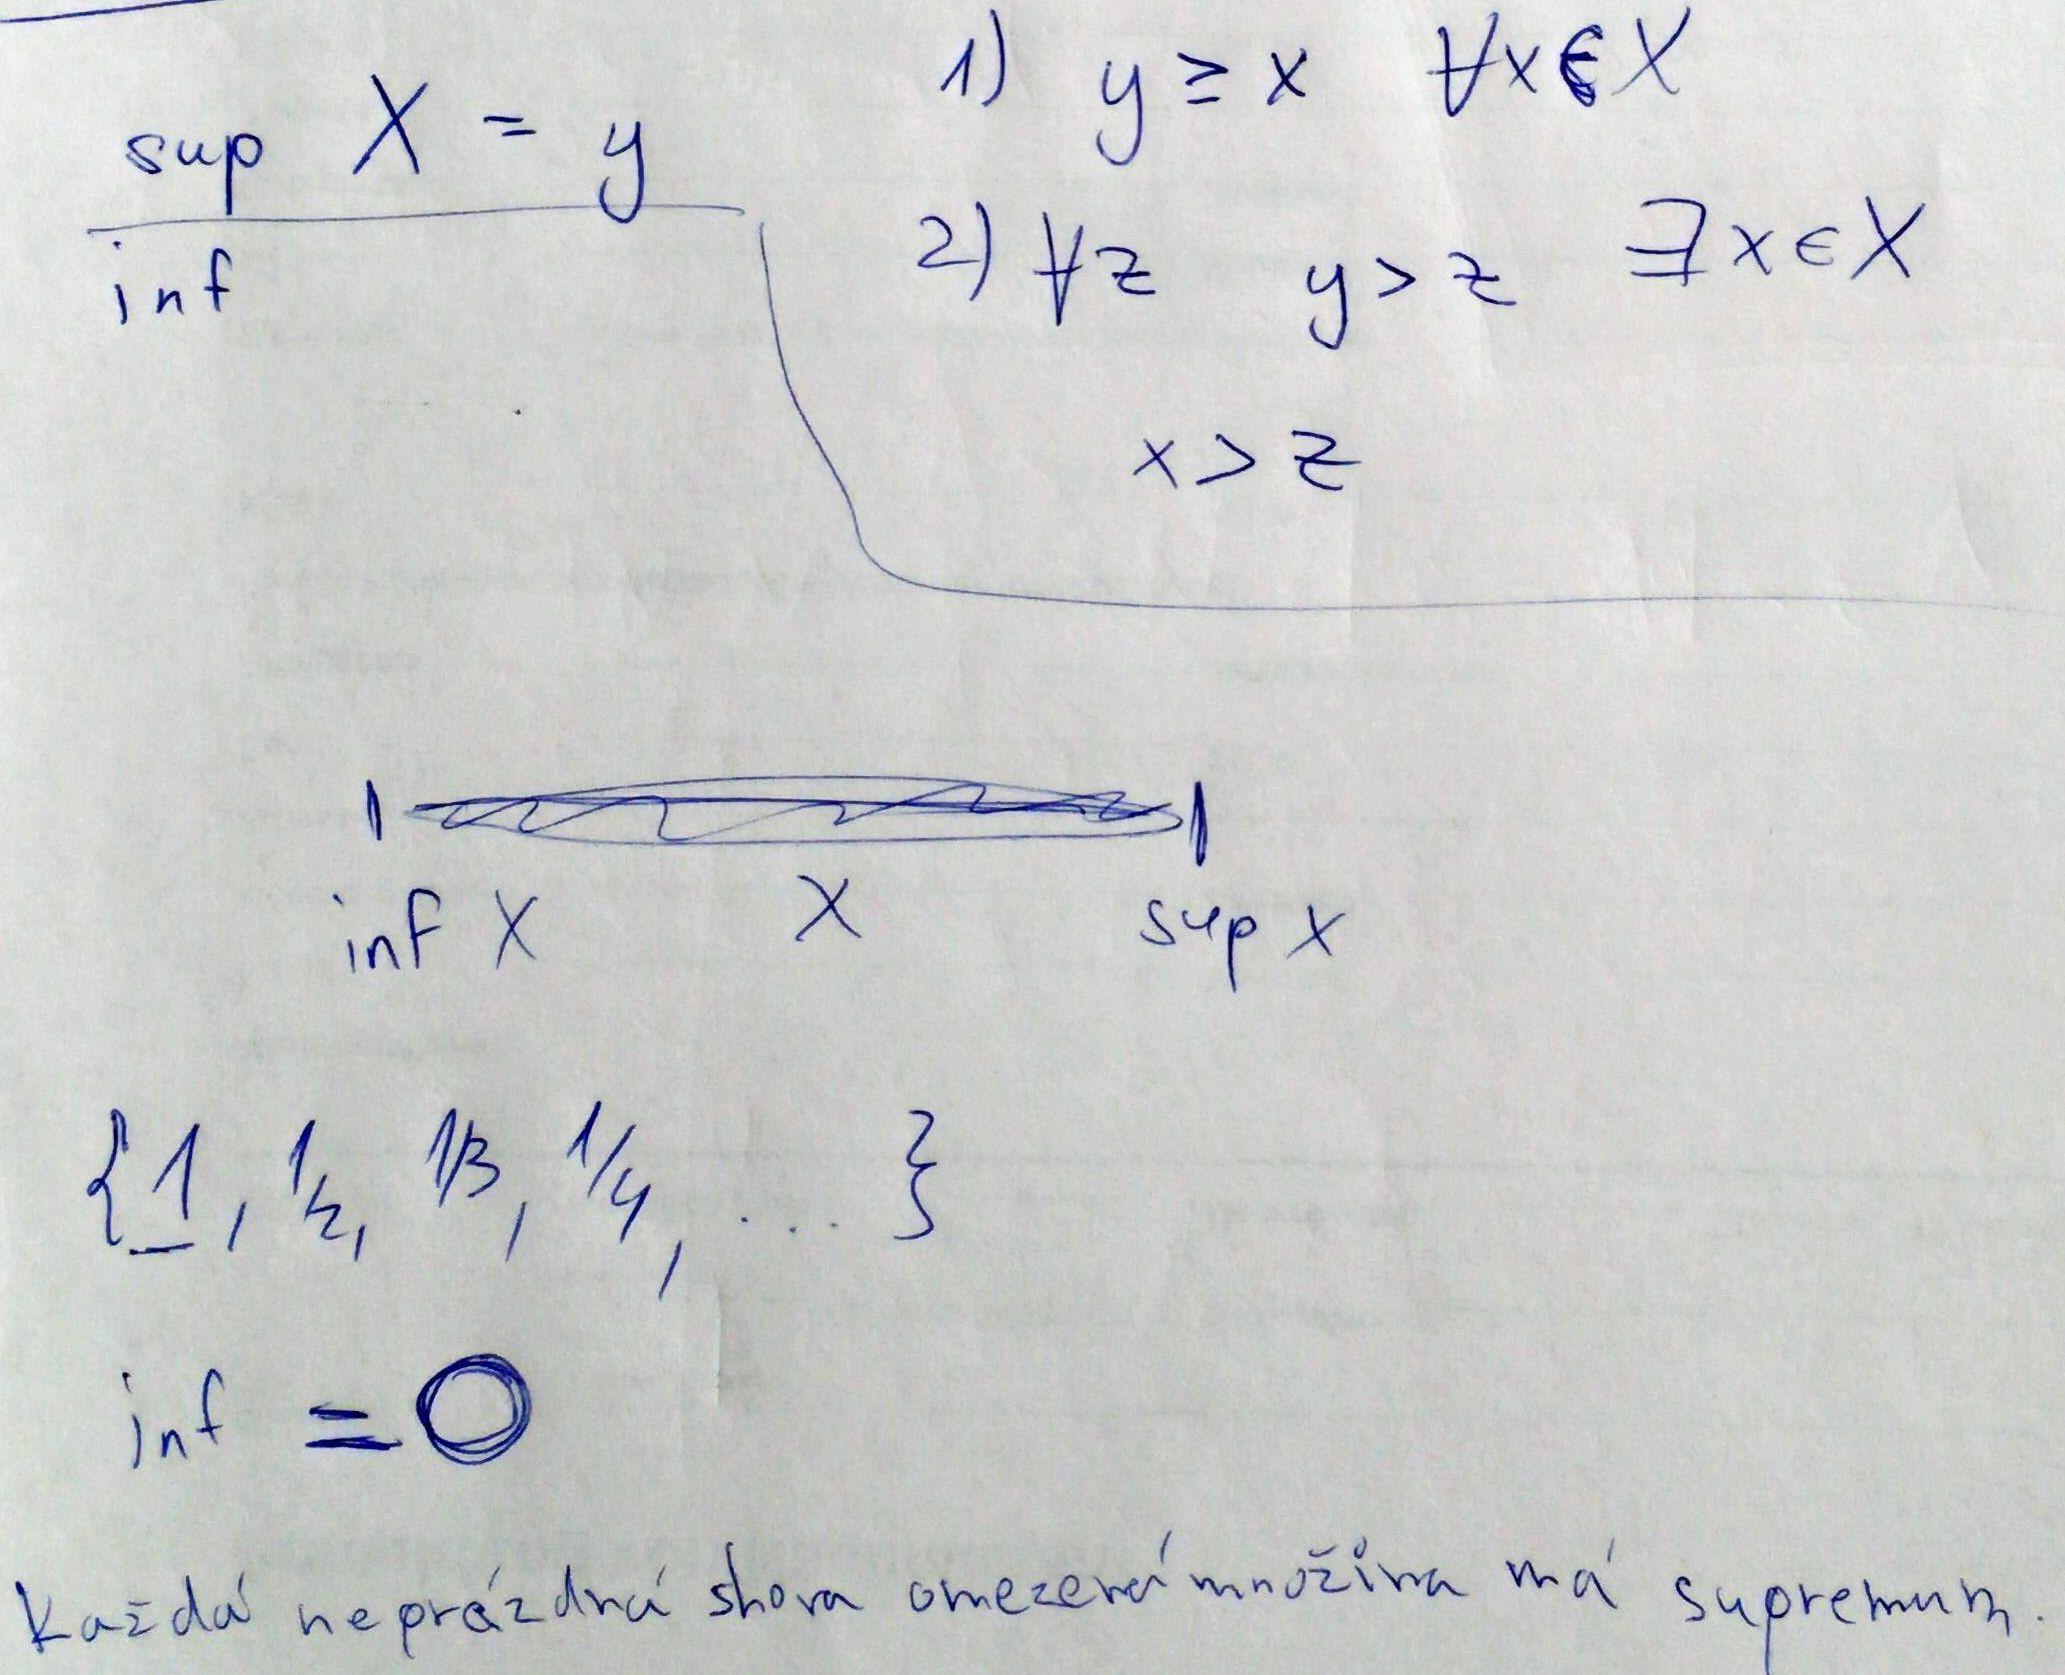 sup X = y
inf
1) y ≥ x ∀x∈X
2) ∀z y > z ∃x∈X
x > z
inf X X sup X
{1, 1/2, 1/3, 1/4, ... }
inf = 0
Každá neprázdná shora omezená množina má supremum.